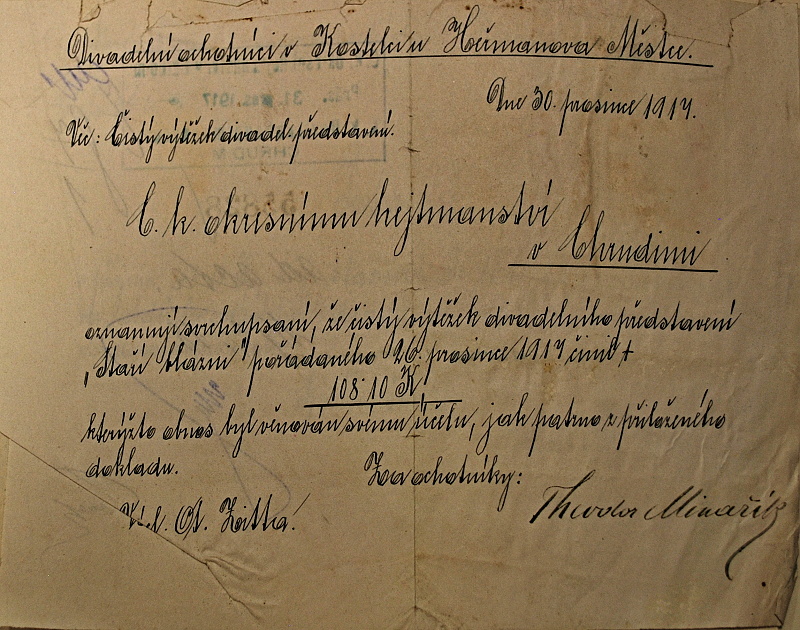 Divadelní ochotníci v Kostelci u Heřmanova Městce.
Dne 30. prosince 1917.
Věc: Čistý výtěžek divadel. představení.
C. k. okresnímu hejtmanství
v Chrudimi
oznamují svrchupsaní, že čistý výtěžek divadelního představení
„Staří blázni" pořádaného 26. prosince 1917 činil
108·10 K
kterýžto obnos byl věnován svému účelu, jak patrno z přiloženého
dokladu.
Za ochotníky:
Ot. Zitta.
Theodor Minařík